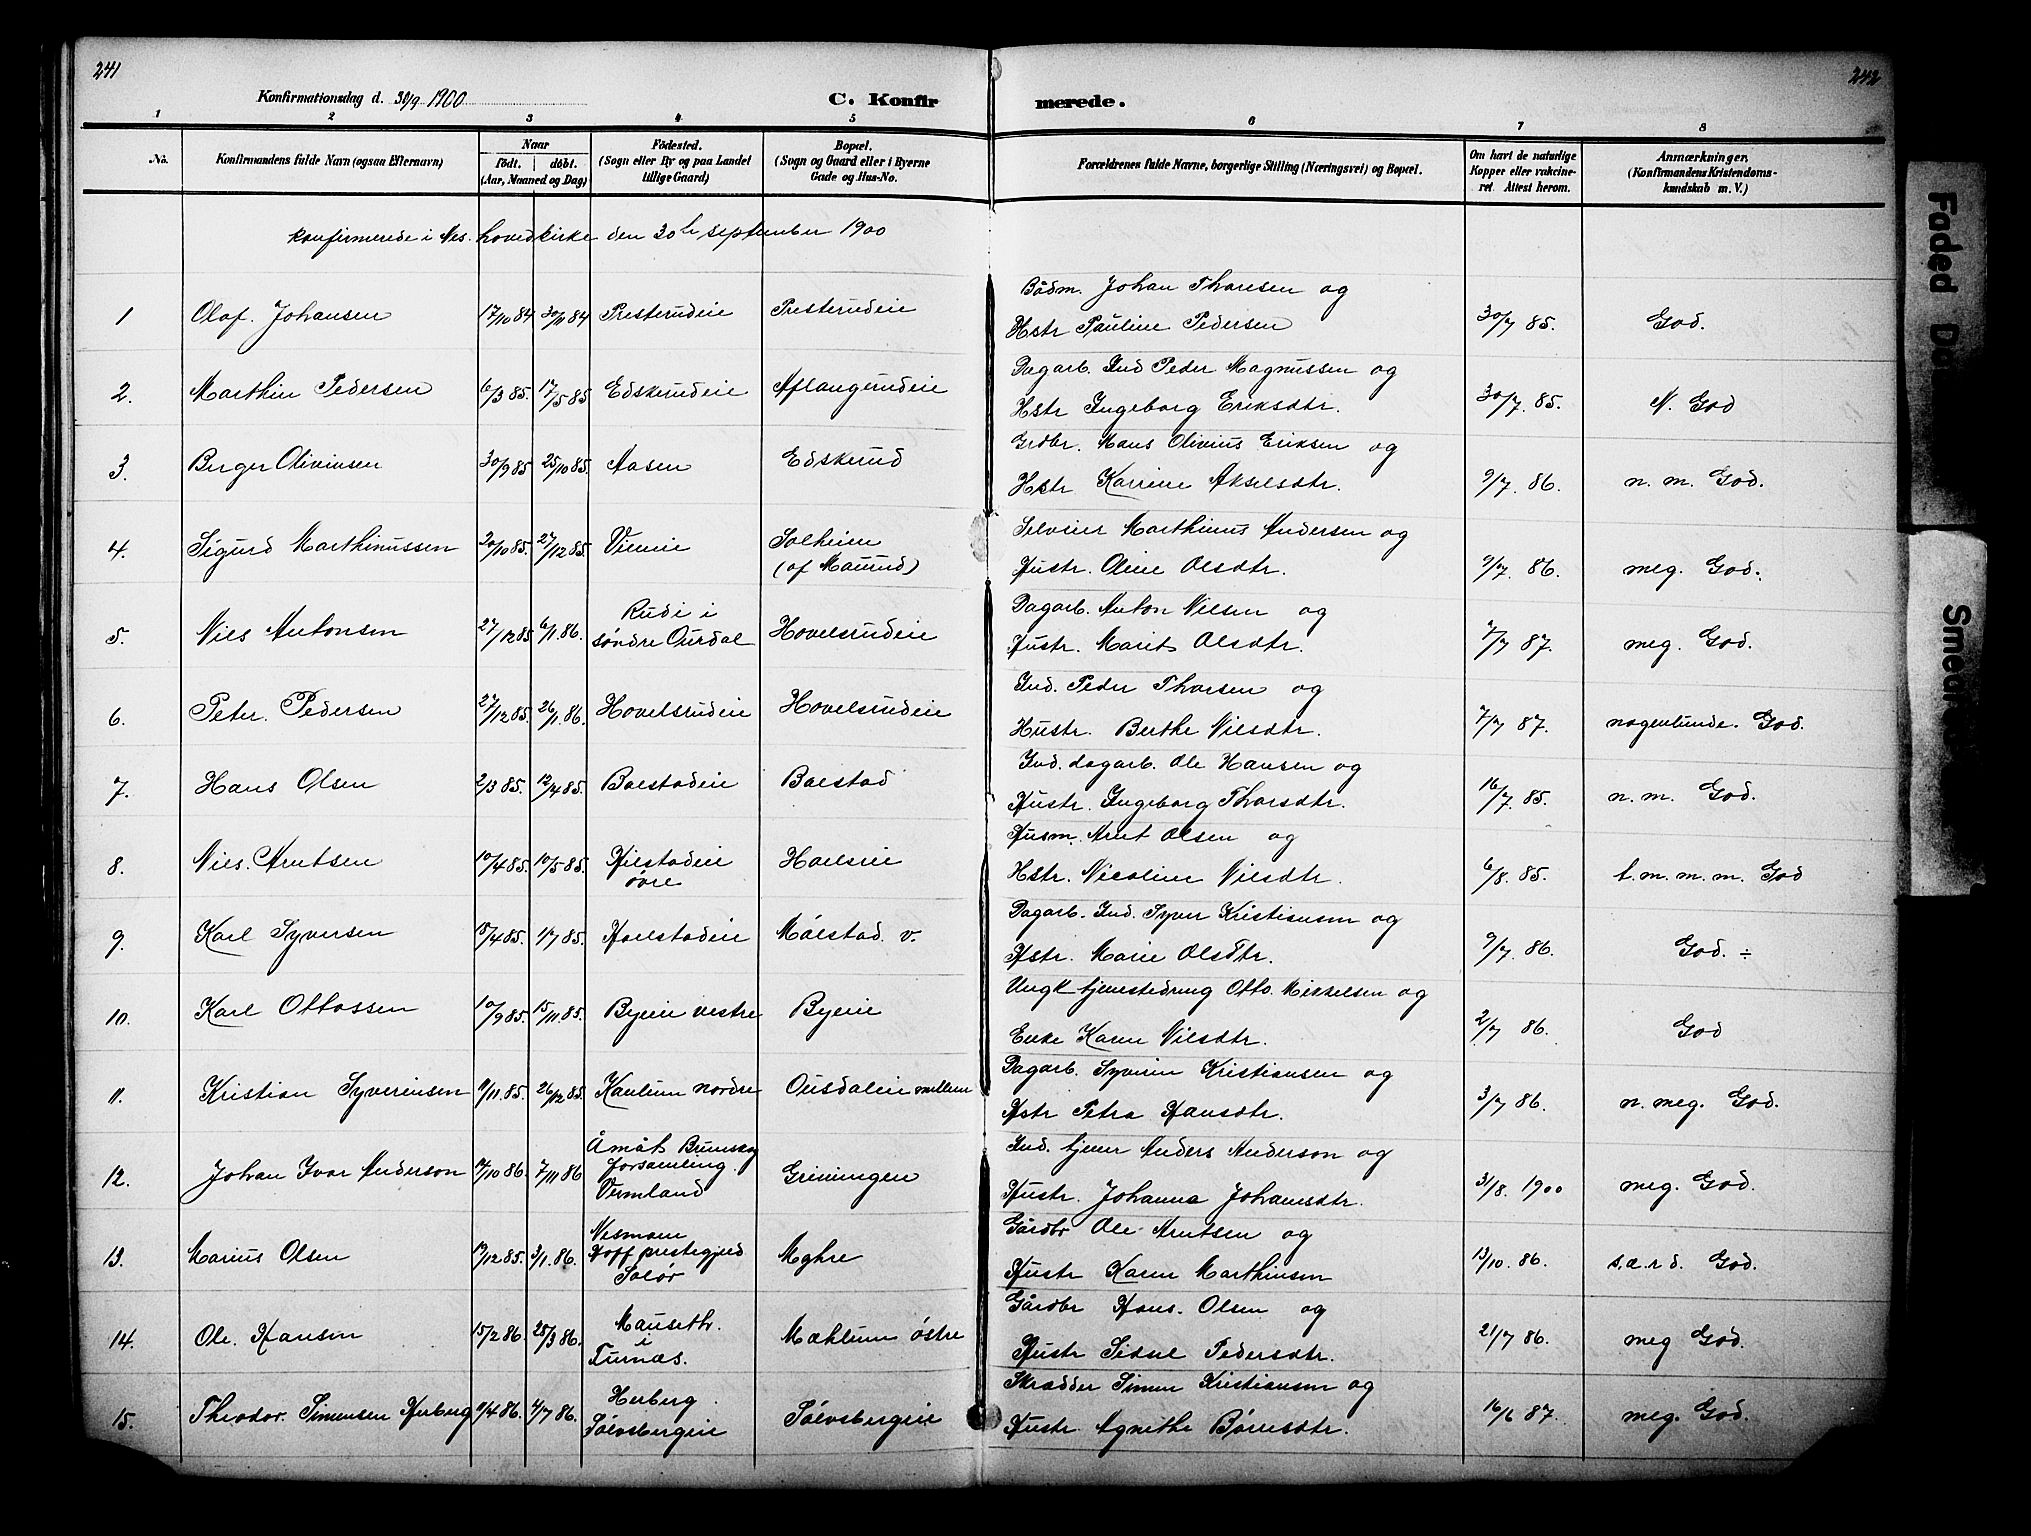 241
242
Konfirmationsdag d. 30/9 1900
C. Konfirmerede.
1 2 3 4 5 6 7 8
No.
Konfirmandens fulde Navn (ogsaa Efternavn)
Naar
födt. döbt.
(Aar, Maaned og Dag)
Födested.
(Sogn eller By og paa Landet
tillige Gaard)
Bopæl.
(Sogn og Gaard eller i Byerne
Gade og Hus-No.
Forældrenes fulde Navne, borgerlige Stilling (Næringsvei) og Bopæl.
Om havt de naturlige
Kopper eller vakcine-
ret. Attest herom.
Anmærkninger.
(Konfirmandens Kristendoms-
kundskab m. V.)
Konfirmerede i Nes hovedkirke den 30te september 1900
1 Olaf Johansen 17/10 84 30/11 84 Presterudeie Presterudeie
Bådm. Johan Thoresen og
Hstr Pauline Pedersen 30/7 85. God.
2. Marthin Pedersen 6/3 85. 17/5 85 Edskerudeie Aflangerudeie
Dagarb. Ind Peder Magnussen og
Hstr Ingeborg Eriksdtr. 30/7. 85. N. God
3. Berger Olivinsen 30/9 85 25/10 85. Aasen Edskerud
Grdbr. Hans Olivius Eriksen og
Hstr Karine Akselsdtr. 9/7. 86. n. m. God.
4. Sigurd Marthinussen 20/10 85. 27/12 85. Solheim
(af Maurud)
Selveier Marthinus Andersen og
Hustr. Oline Olsdtr. 9/7. 86. meg. God.
5. Nils Antonsen 27/12 85 6/1 86. Rudi i
søndre Ourdal Hovelsrudeie
Dagarb. Anton Nilsen og
Hustr. Marit Olsdtr. 7/7 87. meg. God.
6. Peter Pedersen 27/12 85. 26/1. 86. Hovelsrudeie Hovelsrudeie
Ind. Peder Thorsen og
Hustr. Berthe Nilsdtr. 7/7 87. nogenlunde. God.
7. Hans Olsen 2/3 85. 12/4 85. Baestadeie Baestad
Ind. dagarb. Ole Hansen og
Hustr. Ingeborg Thorsdtr. 16/7. 85. n. m. God.
8. Nils Arntsen 10/4 85. 10/5 85. Hjelstadeie
øvre Hoelseie
Husm. Arnt Olsen og
Hstr. Nicoline Nilsdtr. 6/8. 85. t. m. m. m. God
9. Karl Syversen 15/4 85. 1/7 85. Hoelstadeie Mælstad v.
Dagarb. Ind. Syver Kristiansen og
Hstr. Marie Olsdtr. 9/7. 86. God. ÷
10. Karl Ottossen 10/9 85. 15/11. 85. Byeie vestre Byeie
Ungk tjenestedreng Otto Mikkelsen og
Enke Karen Nilsdtr. 2/7 86. God
11. Kristian Syverinsen 11/11. 85. 26/12 85. Kaulum nordre Ousdalen mellem
Dagarb. Syverin Kristiansen og
Hstr Petra Hansdtr. 3/7 86. n. meg. God.
12. Johan Ivar Anderson 12/10 86. 7/11 86 Åmåt Brunskog
forsamling.
Vermland Greningen
Ind. tjener Anders Anderson og
Hustr. Johanna Johansdtr. 31/8. 1900 meg. God.
13. Marius Olsen 19/12 85. 3/1. 86. Nesmoen
Hoff prestegjeld
Solør Møhre
Gårdbr Ole Arntsen og
Hustr Karen Marthinsen 13/10. 86. s.æ.r d. God.
14. Ole Hansen 15/2 86. 28/3 86. Mausethr.
i
Furnæs. Mæhlum østre
Gårdbr Hans Olsen og
Hustr Sidsel Pedersdtr. 21/7 86. meg God.
15. Theodor Simensen Herberg 11/4 86. 4/7 86. Herberg.
Sølvsbergeie Sølvsbergeie
Skrædder Simen Kristiansen og
Hustr. Agnethe Børresdtr. 16/6 87. meg. God.
Faded